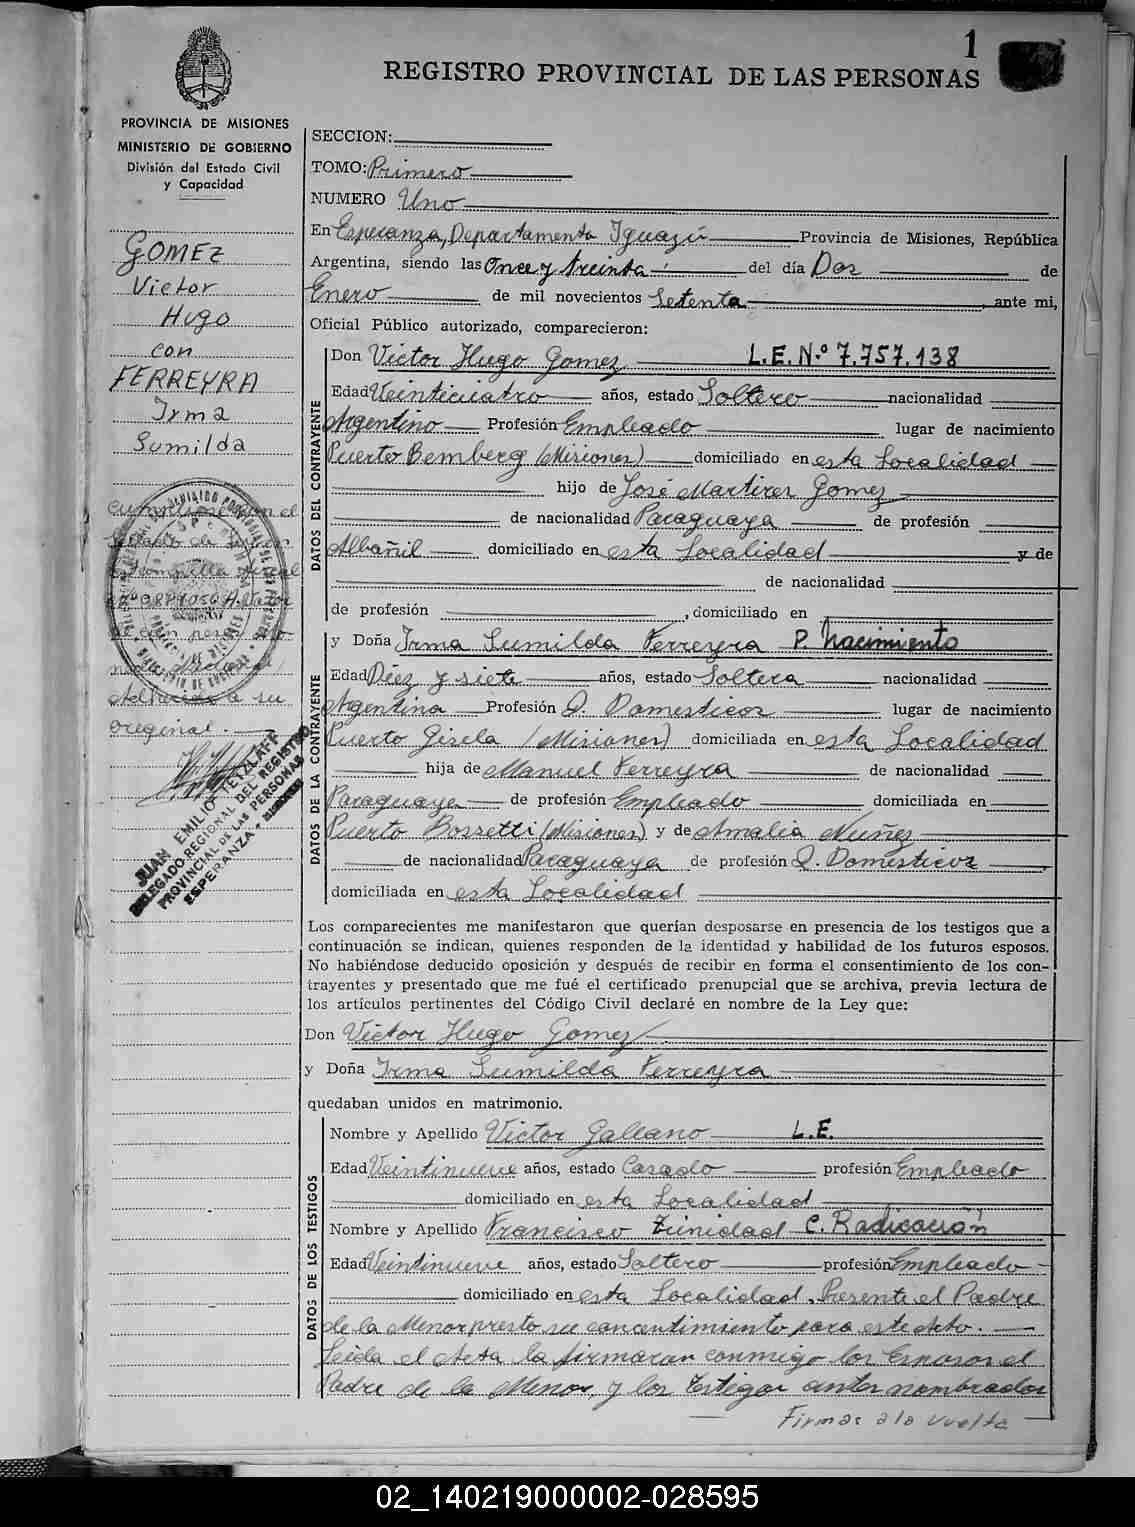 1
REGISTRO PROVINCIAL DE LAS PERSONAS
PROVINCIA DE MISIONES
MINISTERIO DE GOBIERNO
División del Estado Civil
y Capacidad
GOMEZ
Victor
Hugo
con
FERREYRA
Irma
Sumilda
Adherida a su
original.
JUAN EMILIO TETZLAFF
DELEGADO REGIONAL DEL REGISTRO
PROVINCIAL DE LAS PERSONAS
ESPERANZA - MISIONES
SECCION:
TOMO: Primero
NUMERO Uno
En Esperanza, Departamento Iguazú Provincia de Misiones, República
Argentina, siendo las Once y treinta del día Dos de
Enero de mil novecientos Setenta, ante mi,
Oficial Público autorizado, comparecieron:
DATOS DEL CONTRAYENTE
Don Victor Hugo Gomez L.E. N.º 7.757.138
Edad Veinticuatro años, estado Soltero nacionalidad
Argentino Profesión Empleado lugar de nacimiento
Puerto Bemberg (Misiones) domiciliado en esta Localidad
hijo de José Martires Gomez
de nacionalidad Paraguaya de profesión
Albañil domiciliado en esta Localidad y de
de nacionalidad
de profesión , domiciliado en
DATOS DE LA CONTRAYENTE
y Doña Irma Sumilda Ferreyra P. Nacimiento
Edad Diez y siete años, estado Soltera nacionalidad
Argentina Profesión Q. Domesticos lugar de nacimiento
Puerto Gisela (Misiones) domiciliada en esta Localidad
hija de Manuel Ferreyra de nacionalidad
Paraguaya de profesión Empleado domiciliada en
Puerto Bossetti (Misiones) y de Amalia Nuñez
de nacionalidad Paraguaya de profesión Q. Domesticos
domiciliada en esta Localidad
Los comparecientes me manifestaron que querían desposarse en presencia de los testigos que a
continuación se indican, quienes responden de la identidad y habilidad de los futuros esposos.
No habiéndose deducido oposición y después de recibir en forma el consentimiento de los con-
trayentes y presentado que me fué el certificado prenupcial que se archiva, previa lectura de
los artículos pertinentes del Código Civil declaré en nombre de la Ley que:
Don Victor Hugo Gomez
y Doña Irma Sumilda Ferreyra
quedaban unidos en matrimonio.
DATOS DE LOS TESTIGOS
Nombre y Apellido Victor Galeano L.E.
Edad Veintinueve años, estado Casado profesión Empleado
domiciliado en esta Localidad
Nombre y Apellido Francisco Trinidad C. Radicación
Edad Veintinueve años, estado Soltero profesión Empleado
domiciliado en esta Localidad. Presente el Padre
de la Menor presto su concentimiento para este Acto.
Leida el Acta la firmaran conmigo los Esposos el
Padre de la Menor, y los Testigos antes nombrados
Firmas a la vuelta
02_140219000002-028595